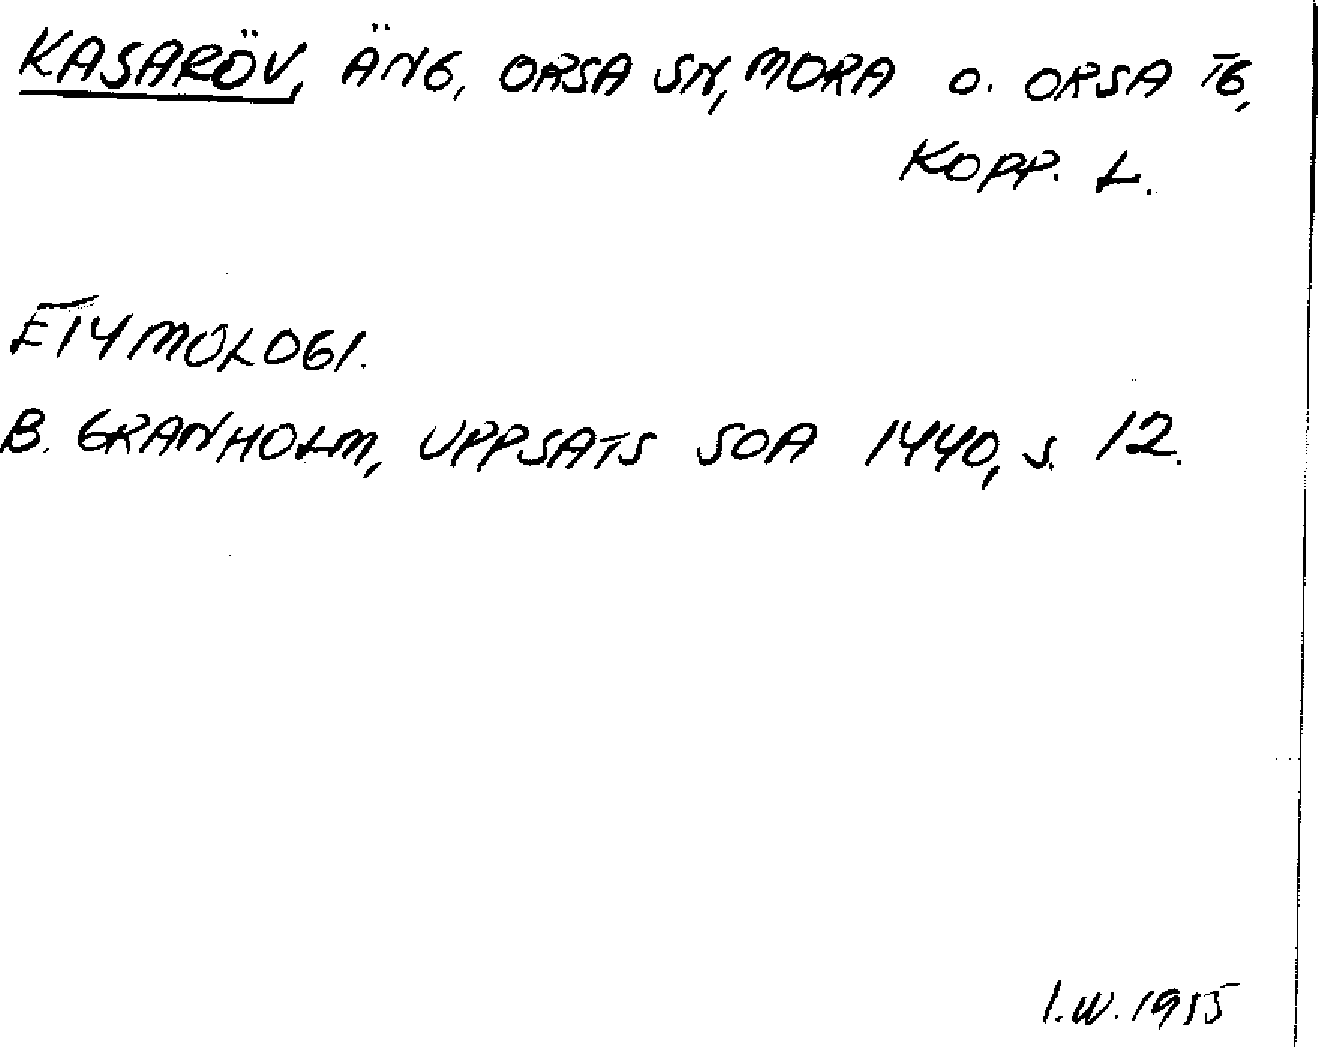 KASARÖV, ÄNG, ORSA SN, MORA O. ORSA TG,
KOPP. L.
ETYMOLOGI.
B. GRANHOLM, UPPSATS SOA 1440, S. 12.
I.W. 1955